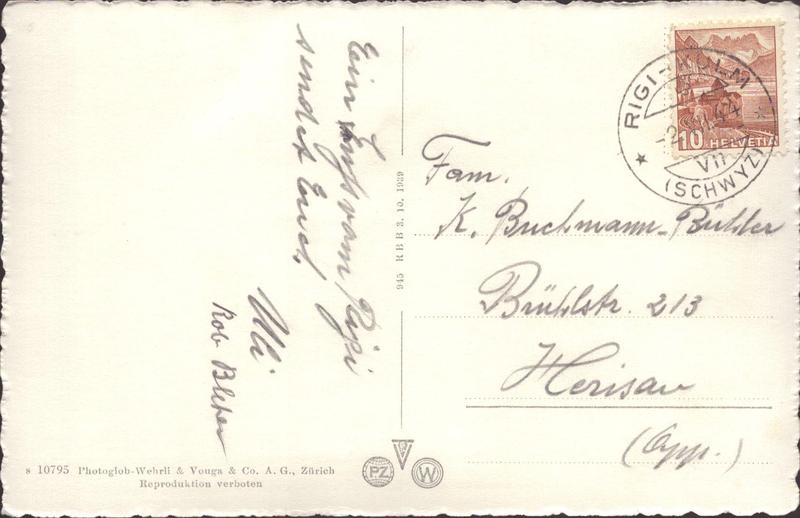 Ein Gruss vom Rigi
sendet Euch
Uli
Rob
945 RBB 3. 10. 1939
RIGI-KULM
VII
(SCHWYZ)
10 HELVETIA
Fam.
K. Buchmann-Bühler
Brühlstr. 213
Herisau
(App.)
s 10795 Photoglob-Wehrli & Vouga & Co. A. G., Zürich
Reproduktion verboten
PZ
W